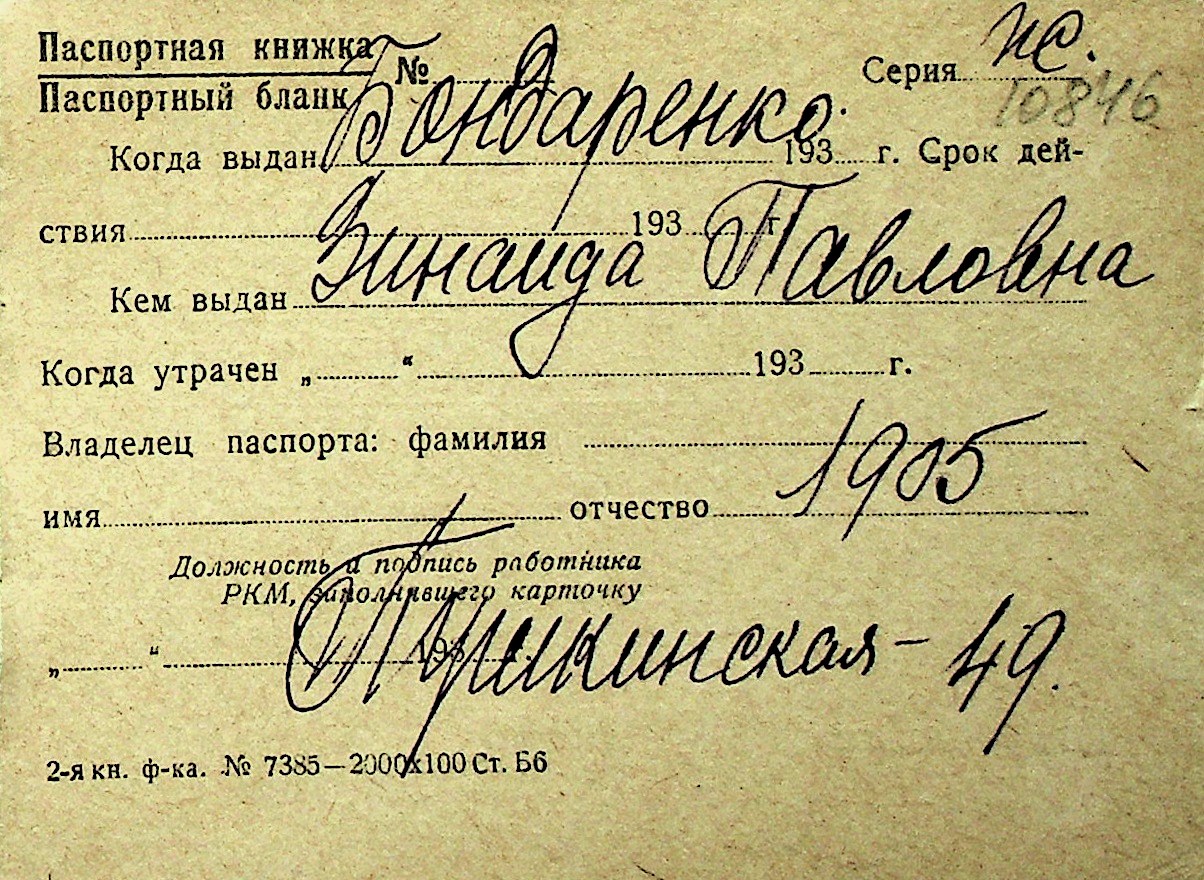 Паспортная книжка
Паспортный бланк № Серия
Бондаренко.
10846
Когда выдан 193 г. Срок дей-
ствия 193 г.
Зинаида Павловна
Кем выдан
Когда утрачен „ “ 193 г.
Владелец паспорта: фамилия
1905
имя отчество
Должность и подпись работника
РКМ, заполнявшего карточку
„ “ 193
Пушкинская - 49.
2-я кн. ф-ка. № 7385—2000х100 Ст. Б6